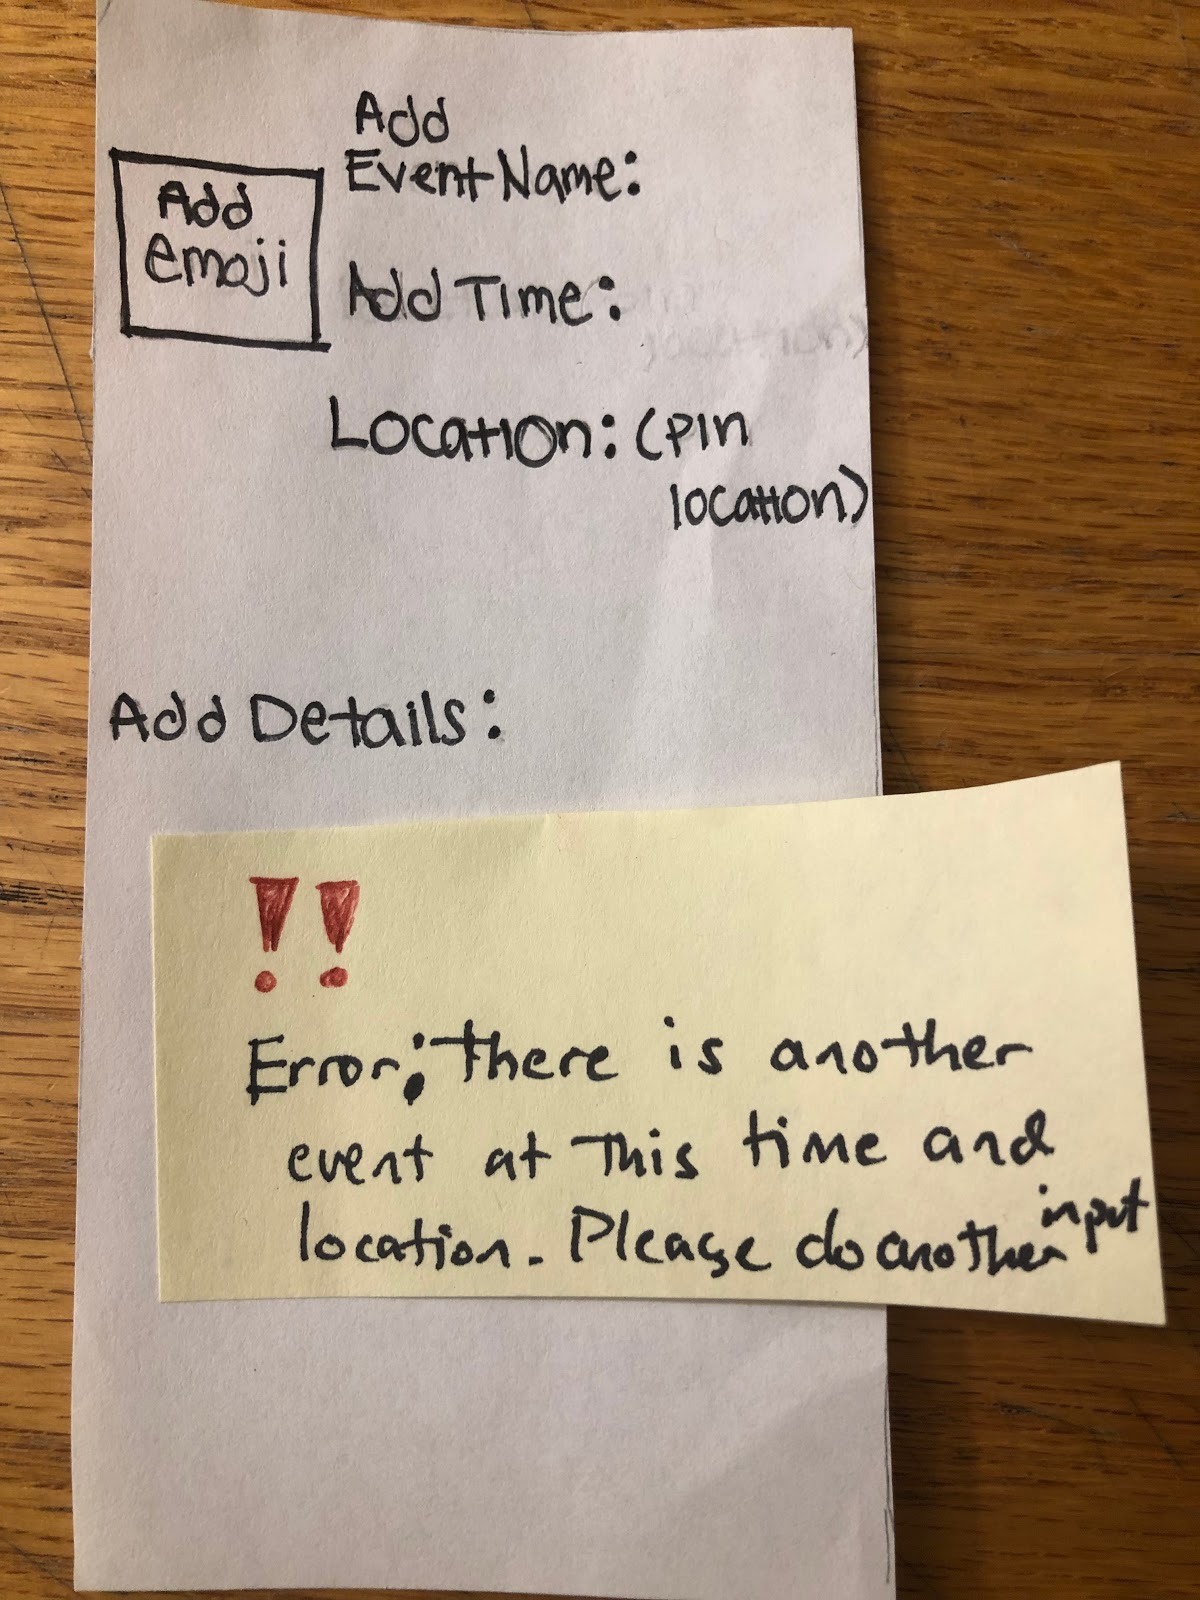 Add
Event Name:
Add
emoji
Add Time:
Location: (pin
location)
Add Details:
!!
Error: There is another
event at This time and
location. Please do another input